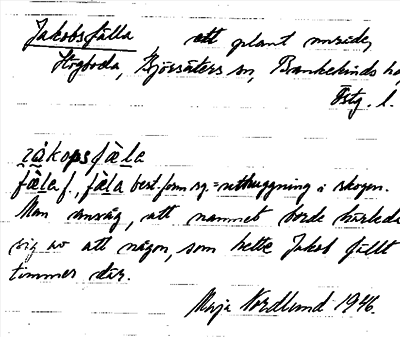 Jakobsfälla ett plant område,
Högboda, Björsäters sn, Bankekinds hd
Östg. l.
jàkopsfæ̀la
fæ̀la f., fæ̀la best. form sg. = uthuggning i skogen.
Man ansåg, att namnet borde härleda
sig av att någon, som hette Jakob fällt
timmer där.
Maja Nordlund 1946.